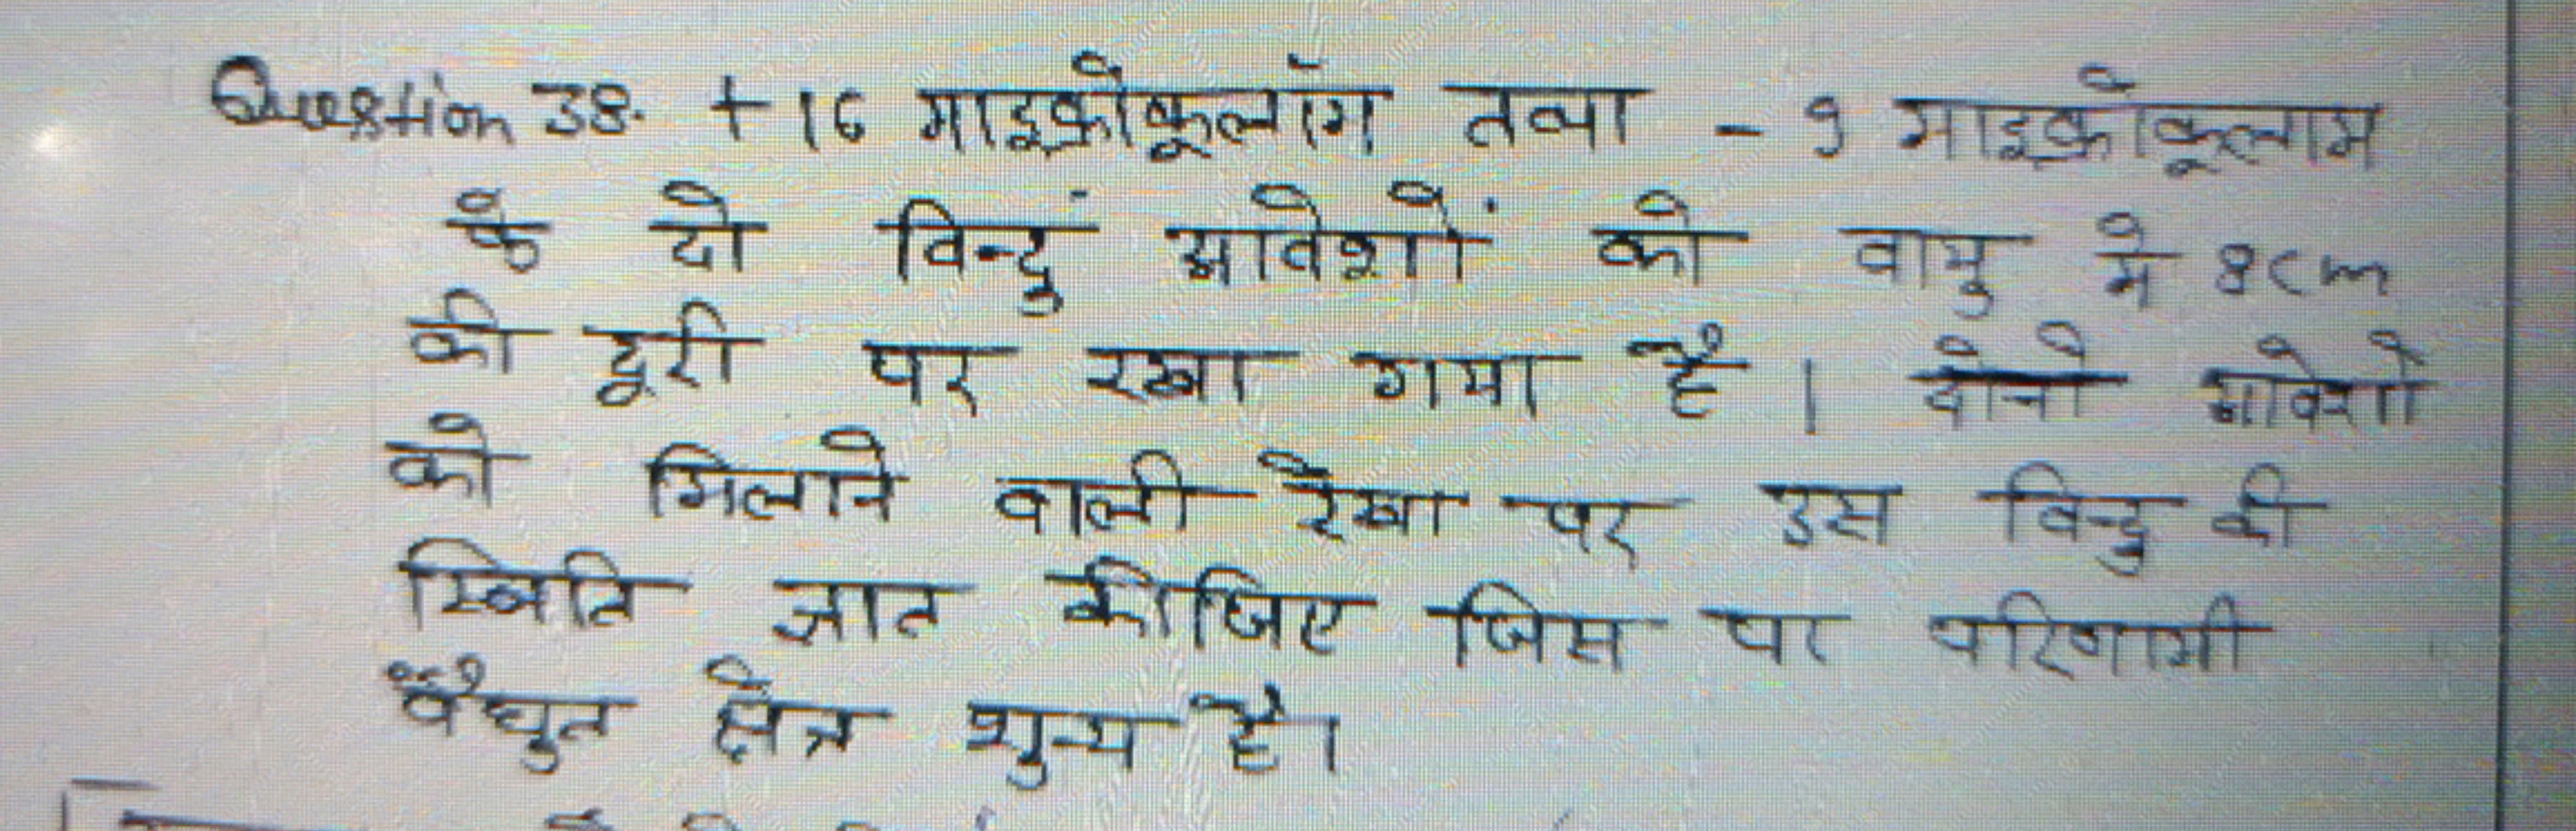 Question 38. +16 माइक्रोकूलॉम तथा - 9 माइक्रोकूलाम
के दो विन्दुं आवेशों को वायु मे 8cm
की दूरी पर रखा गया है । दोनो आवेशो
को मिलाने वाली रेखा पर उस विन्दु की
स्थिति ज्ञात कीजिए जिस पर परिणामी
वैधुत क्षेत्र शुन्य है।